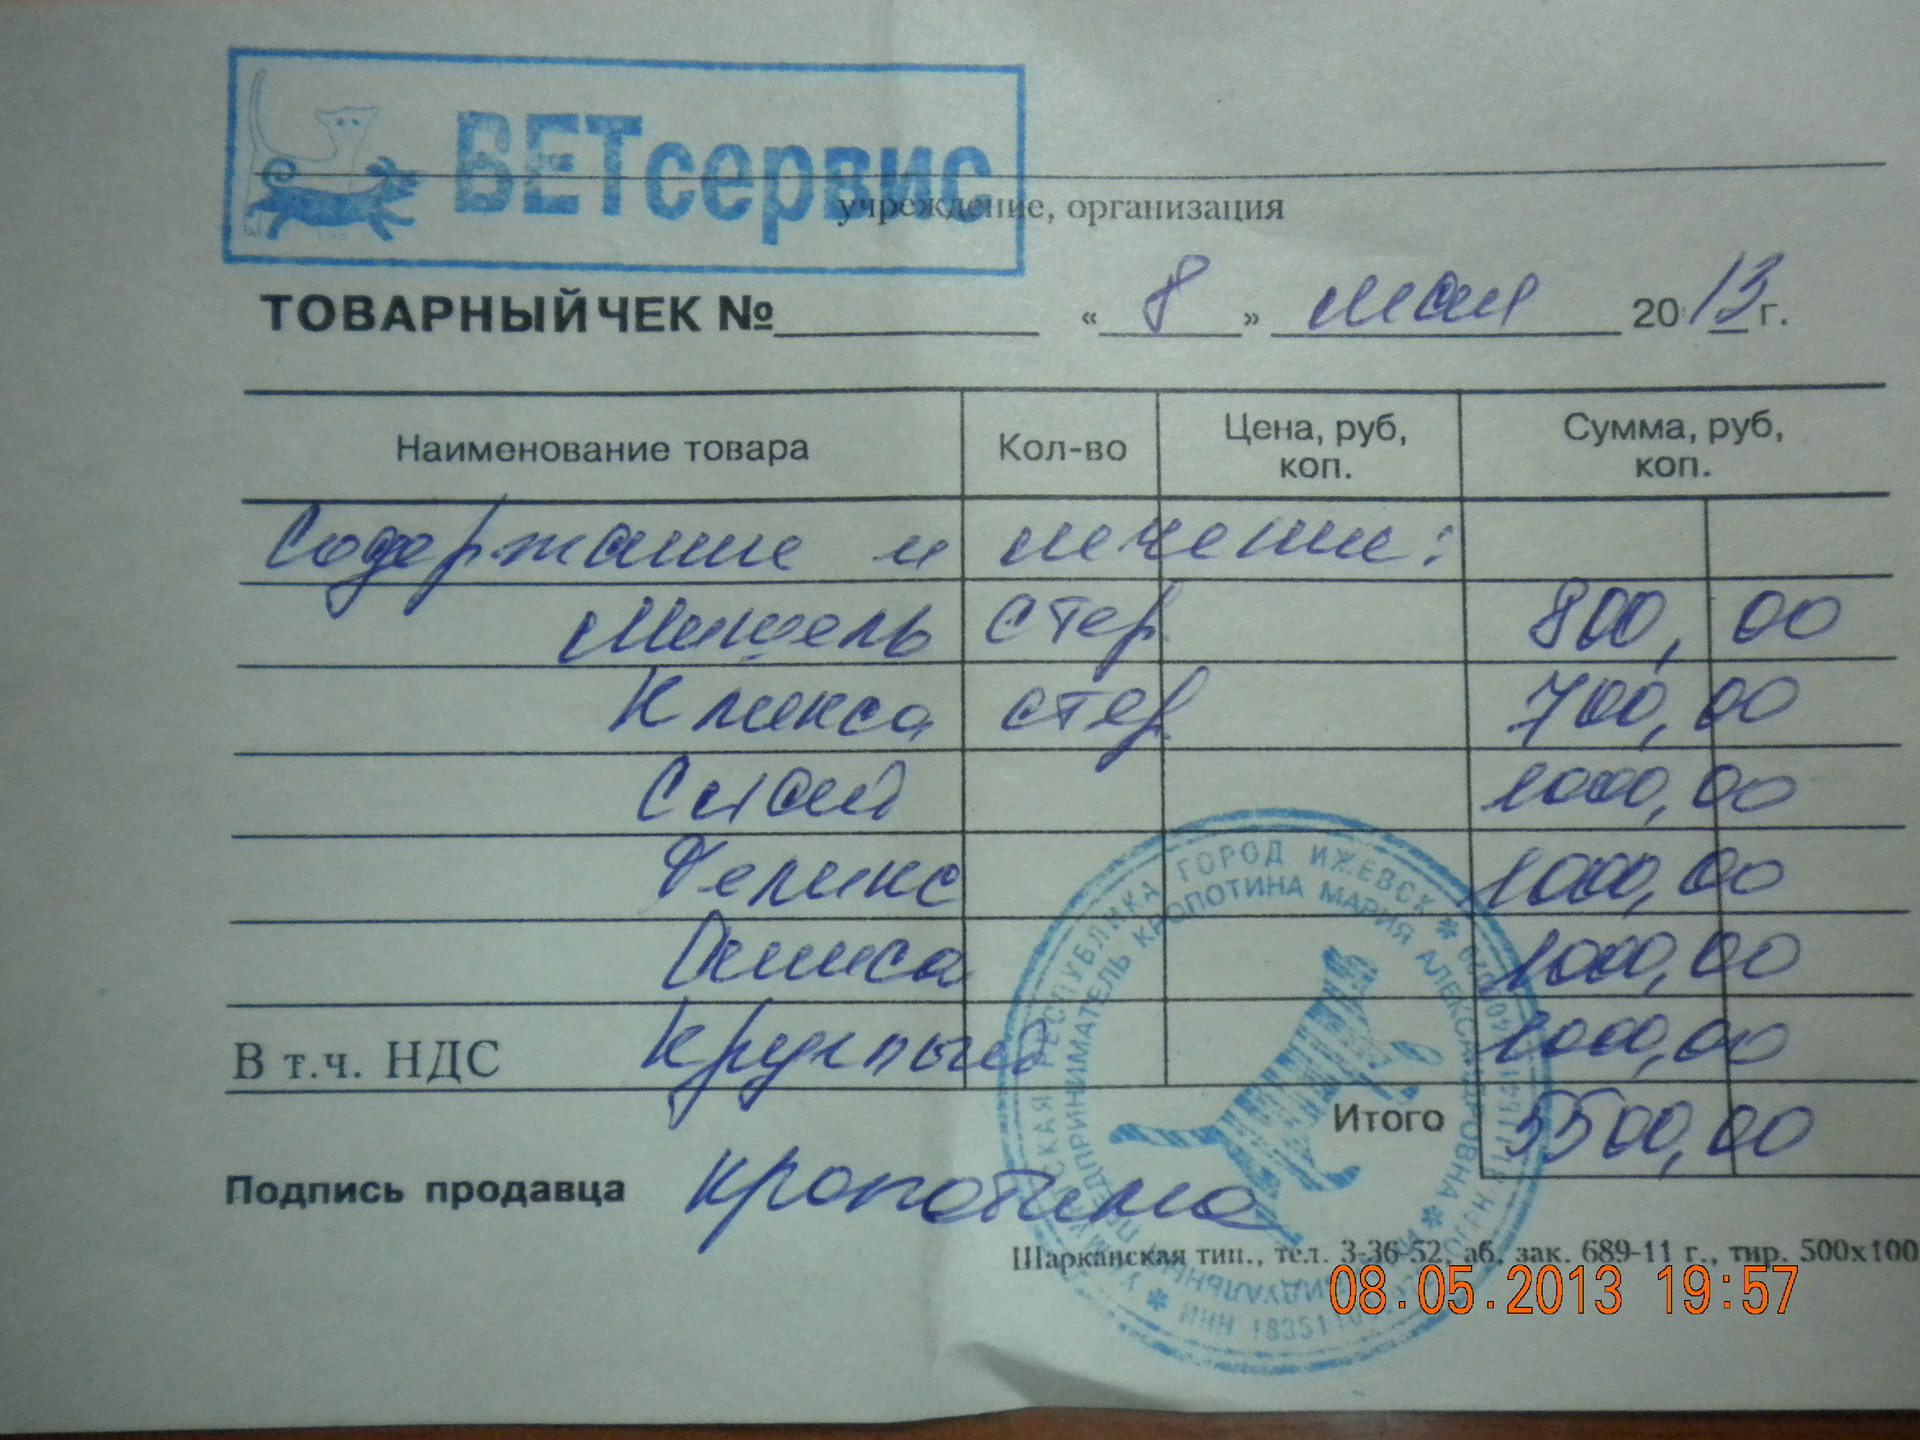 ВЕТсервис
учреждение, организация
ТОВАРНЫЙ ЧЕК № « 8 » мая 2013 г.
Наименование товара Кол-во Цена, руб, коп. Сумма, руб, коп.
Содержание и лечение:
Мишель стер 800,00
Кликса стер 700,00
1000,00
Феликс 1000,00
Алиса 1000,00
В т.ч. НДС Круглый 1000,00
Итого 5500,00
Подпись продавца Кропотина
Шарканская тип., тел. 3-36-52, а6, зак. 689-11 г., тир. 500х100
РЕСПУБЛИКА ГОРОД ИЖЕВСК
ПРЕДПРИНИМАТЕЛЬ КРОПОТИНА МАРИЯ АЛЕКСАНДРОВНА
08.05.2013 19:57